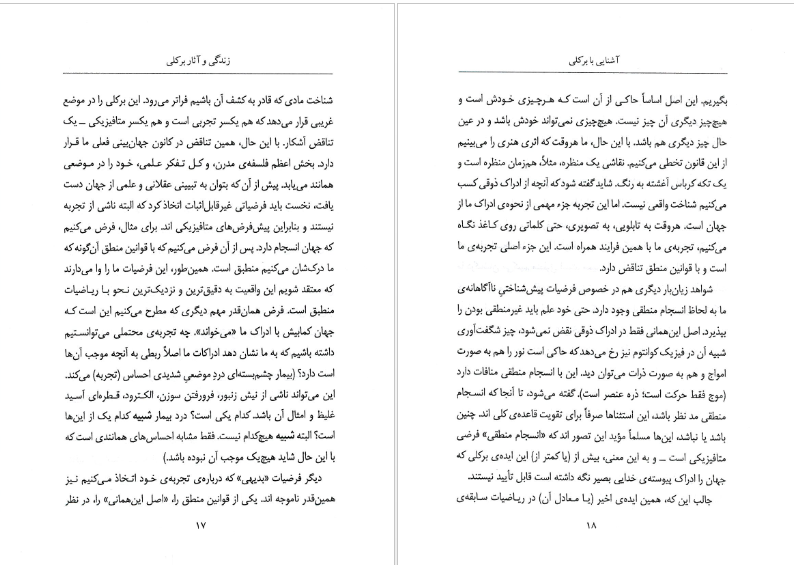 زندگی و آثار برکلی
شناخت مادی که قادر به کشف آن باشیم فراتر می‌رود. این برکلی را در موضع
غریبی قرار می‌دهد که هم یکسر تجربی است و هم یکسر متافیزیکی ــ یک
تناقض آشکار. با این حال، همین تناقض در کانون جهان‌بینی فعلی ما قرار
دارد. بخش اعظم فلسفه‌ی مدرن، و کل تفکر علمی، خود را در موضعی
همانند می‌یابد. پیش از آن که بتوان به تبیینی عقلانی و علمی از جهان دست
یافت، نخست باید فرضیاتی غیرقابل‌اثبات اتخاذ کرد که البته ناشی از تجربه
نیستند و بنابراین پیش‌فرض‌های متافیزیکی اند. برای مثال، فرض می‌کنیم
که جهان انسجام دارد. پس از آن فرض می‌کنیم که با قوانین منطق آن‌گونه که
ما درک‌شان می‌کنیم منطبق است. همین‌طور، این فرضیات ما را وا می‌دارند
که معتقد شویم این واقعیت به دقیق‌ترین و نزدیک‌ترین نحو با ریاضیات
منطبق است. فرض همان‌قدر مهم دیگری که مطرح می‌کنیم این است که
جهان کمابیش با ادراک ما «می‌خواند». چه تجربه‌ی محتملی می‌توانستیم
داشته باشیم که به ما نشان دهد ادراکات ما اصلاً ربطی به آنچه موجب آن‌ها
است دارد؟ (بیمار چشم‌بسته‌ای دردِ موضعیِ شدیدی احساس (تجربه) می‌کند.
این می‌تواند ناشی از نیش زنبور، فرورفتن سوزن، الکترود، قطره‌ای آسید
غلیظ و امثال آن باشد. کدام یکی است؟ درد بیمار شبیه کدام یک از این‌ها
است؟ البته شبیه هیچ‌کدام نیست. فقط مشابه احساس‌های همانندی است که
با این حال شاید هیچ‌یک موجب آن نبوده باشد.)
دیگر فرضیات «بدیهی» که درباره‌ی تجربه‌ی خود اتخاذ می‌کنیم نیز
همین‌قدر ناموجه اند. یکی از قوانین منطق را، «اصل این‌همانی» را، در نظر
۱۷
آشنایی با برکلی
بگیریم. این اصل اساساً حاکی از آن است که هرچیزی خودش است و
هیچ‌چیز دیگری آن چیز نیست. هیچ‌چیزی نمی‌تواند خودش باشد و در عین
حال چیز دیگری هم باشد. با این حال، ما هروقت که اثری هنری را می‌بینیم
از این قانون تخطی می‌کنیم. نقاشی یک منظره، مثلاً، هم‌زمان منظره است و
یک تکه کرباس آغشته به رنگ. شاید گفته شود که آنچه از ادراک ذوقی کسب
می‌کنیم شناخت واقعی نیست. اما این تجربه جزء مهمی از نحوه‌ی ادراک ما از
جهان است. هروقت به تابلویی، به تصویری، حتی کلماتی روی کاغذ نگاه
می‌کنیم، تجربه‌ی ما با همین فرایند همراه است. این جزء اصلی تجربه‌ی ما
است و با قوانین منطق تناقض دارد.
شواهد زیان‌بار دیگری هم در خصوص فرضیات پیش‌شناختیِ ناآگاهانه‌ی
ما به لحاظ انسجام منطقی وجود دارد. حتی خود علم باید غیرمنطقی بودن را
بپذیرد. اصل این‌همانی فقط در ادراک ذوقی نقض نمی‌شود، چیز شگفت‌آوری
شبیه آن در فیزیک کوانتوم نیز رخ می‌دهد که حاکی است نور را هم به صورت
امواج و هم به صورت ذرات می‌توان دید. این با انسجام منطقی منافات دارد
(موج فقط حرکت است؛ ذره عنصر است). گفته می‌شود، تا آنجا که انسجام
منطقی مد نظر باشد، این استثناها صرفاً برای تقویت قاعده‌ی کلی اند. چنین
باشد یا نباشد، این‌ها مسلماً مؤید این تصور اند که «انسجام منطقی» فرضی
متافیزیکی است ــ و به این معنی، بیش از (یا کمتر از) این ایده‌ی برکلی که
جهان را ادراک پیوسته‌ی خدایی بصیر نگه داشته است قابل تأیید نیستند.
جالب این که، همین ایده‌ی اخیر (یا معادل آن) در ریاضیات سابقه‌ی
۱۸